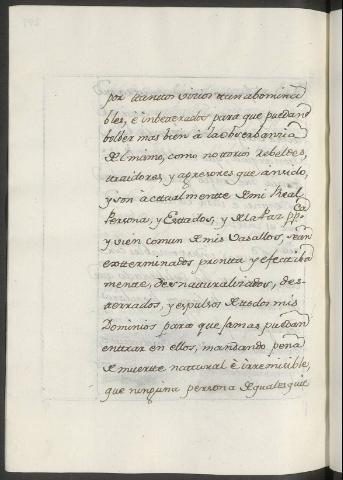 por ttanttos vicios ttan abomina
bles, è inbetterados para que puedan
bolber mas bien à la observanzia
del mismo, como nottorios rebeldes,
ttraidores, y agresores que an sido,
y son àcttualmentte de mi Real
Persona, y Esttados, y de la Paz ppca
y vien comun de mis Vasallos, sean
extterminados prontta y efecttiba
mentte, desnatturalizados, des-
tterrados, y espulsos de ttodos mis
Dominios para que jamas puedan
enttrar en ellos, mandando pena
de muertte nattural è irremisible,
que ninguna persona de qualesquie